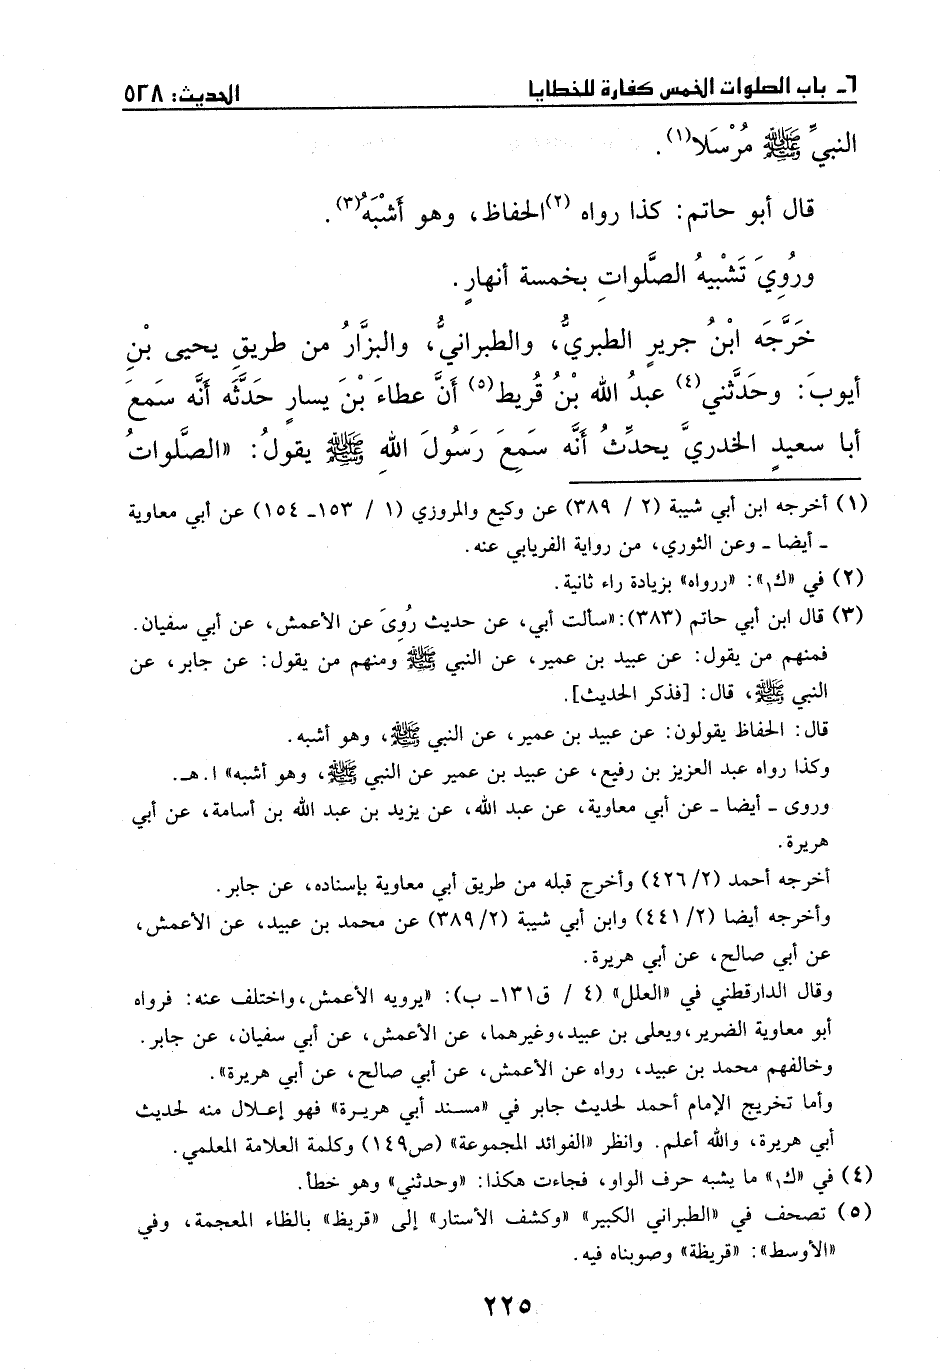 ٦ـ باب الصلوات الخمس كفارة للخطايا الحديث: ٥٢٨
النبيِّ ﷺ مُرْسَلا(١).
قال أبو حاتم: كذا رواه (٢)الحفاظ، وهو أَشْبَهُ(٣).
ورُوِيَ تَشْبِيهُ الصَّلواتِ بخمسة أنهارٍ.
خَرَّجَه ابْنُ جريرٍ الطبريُّ، والطبرانيُّ، والبزَّارُ من طريقِ يحيى بْنِ
أيوبَ: وحَدَّثني(٤) عبدُ الله بْنُ قُريط(٥) أَنَّ عطاءَ بْنَ يسارٍ حَدَّثَه أنَّه سَمِعَ
أبا سعيدٍ الخدريَّ يحدِّثُ أَنَّه سَمِعَ رَسُولَ اللهِ ﷺ يقولُ: «الصَّلواتُ
(١) أخرجه ابن أبي شيبة (٢ / ٣٨٩) عن وكيع والمروزي (١ / ١٥٣ـ ١٥٤) عن أبي معاوية
ـ أيضا ـ وعن الثوري، من رواية الفريابي عنه.
(٢) في «ك١»: «ررواه» بزيادة راء ثانية.
(٣) قال ابن أبي حاتم (٣٨٣):«سألت أبي، عن حديث رُوِىَ عن الأعمش، عن أبي سفيان.
فمنهم من يقول: عن عبيد بن عمير، عن النبي ﷺ ومنهم من يقول: عن جابر، عن
النبي ﷺ، قال: [فذكر الحديث].
قال: الحفاظ يقولون: عن عبيد بن عمير، عن النبي ﷺ، وهو أشبه.
وكذا رواه عبد العزيز بن رفيع، عن عبيد بن عمير عن النبي ﷺ، وهو أشبه» ا.هـ.
وروى ـ أيضا ـ عن أبي معاوية، عن عبد الله، عن يزيد بن عبد الله بن أسامة، عن أبي
هريرة.
أخرجه أحمد (٤٢٦/٢) وأخرج قبله من طريق أبي معاوية بإسناده، عن جابر.
وأخرجه أيضا (٤٤١/٢) وابن أبي شيبة (٣٨٩/٢) عن محمد بن عبيد، عن الأعمش،
عن أبي صالح، عن أبي هريرة.
وقال الدارقطني في «العلل» (٤ / ق١٣١ـ ب): «يرويه الأعمش،واختلف عنه: فرواه
أبو معاوية الضرير،ويعلى بن عبيد،وغيرهما، عن الأعمش، عن أبي سفيان، عن جابر.
وخالفهم محمد بن عبيد، رواه عن الأعمش، عن أبي صالح، عن أبي هريرة».
وأما تخريج الإمام أحمد لحديث جابر في «مسند أبي هريرة» فهو إعلال منه لحديث
أبي هريرة، والله أعلم. وانظر «الفوائد المجموعة» (ص١٤٩) وكلمة العلامة المعلمي.
(٤) في «ك١» ما يشبه حرف الواو، فجاءت هكذا: «وحدثني» وهو خطأ.
(٥) تصحف في «الطبراني الكبير» «وكشف الأستار» إلى «قريظ» بالظاء المعجمة، وفي
«الأوسط»: «قريظة» وصوبناه فيه.
٢٢٥